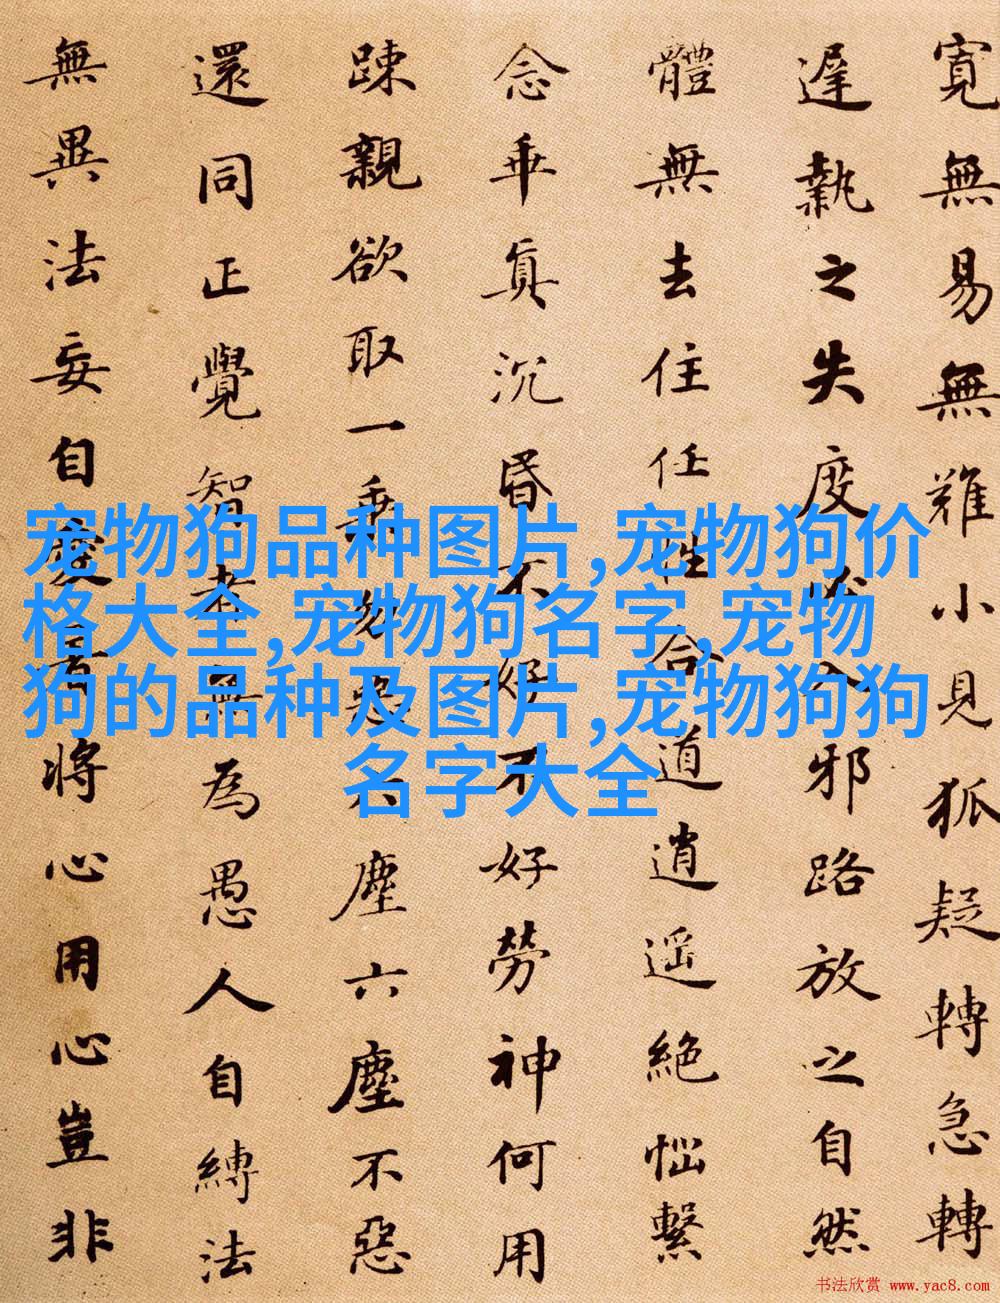 寬無易無難小見狐疑轉急轉
遲執之失度必入邪路放之自然
體無去住任性合道逍遙絕惱繫
念乖真沉昏不好不好勞神何用
踈親欲取一乘勿惡六塵六塵不惡
還同正覺智者無為愚人自縛法
無異法妄自愛著將心用心豈非
宠物狗品种图片,宠物狗价
格大全,宠物狗名字,宠物
狗的品种及图片,宠物狗狗
名字大全
书法欣赏 www.yac8.com